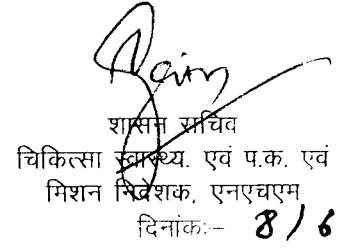 शासन सचिव
चिकित्सा स्वास्थ्य. एवं प.क. एवं
मिशन निदेशक, एनएचएम
दिनांकः– 8/6